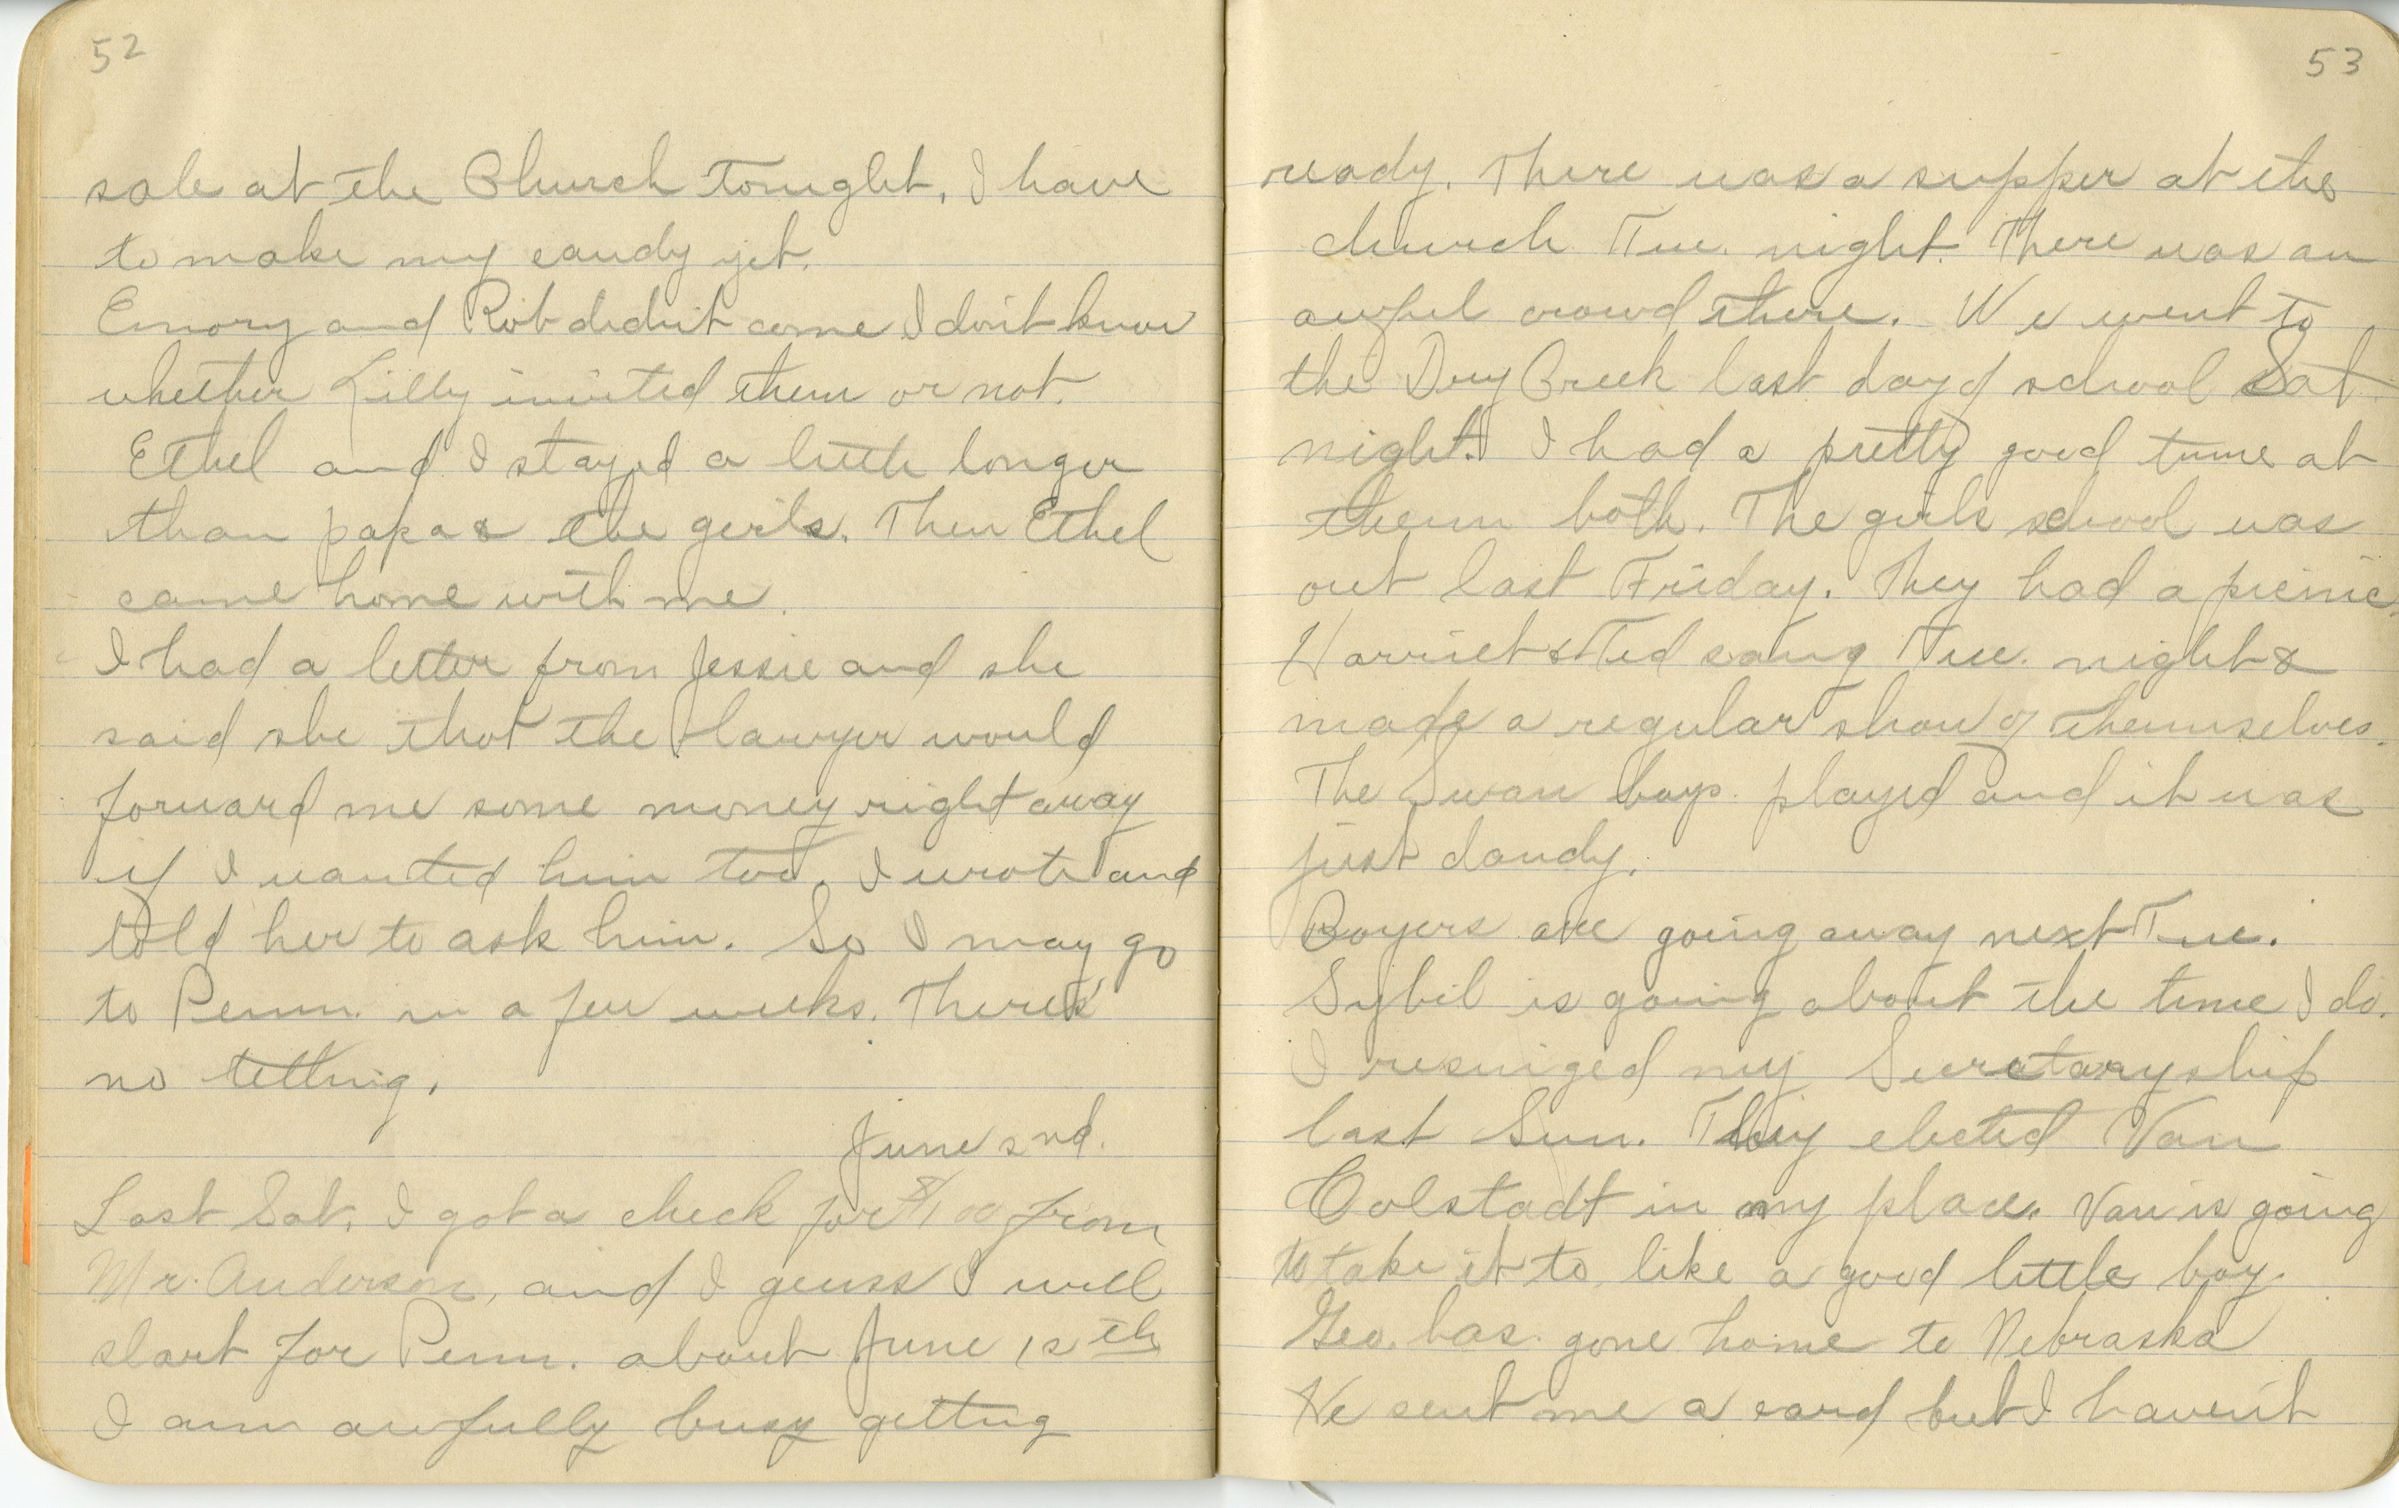 52
sale at the Church tonight, I have
to make my candy yet.
Emory and Rob didn't come I don't know
whether Lilly invited them or not.
Ethel and I stayed a little longer
than papa & the girls. Then Ethel
came home with me.
I had a letter from Jessie and she
said she that the lawyer would
forward me some money right away
if I wanted him too. I wrote and
told her to ask him. So I may go
to Penn. in a few weeks. There's
no telling.
June 2nd.
Last Sat. I got a check for $100 from
Mr. Anderson, and I guess I will
start for Penn. about June 12th
I am awfully busy getting
53
ready. There was a supper at the
church Tue. night. There was an
awful crowd there. We went to
the Dry Creek last day of school Sat.
night. I had a pretty good time at
them both. The girls school was
out last Friday. They had a picnic.
Harriet & Ted sang Tue. night &
made a regular show of themselves.
The Swan boys played and it was
just dandy.
Boyers are going away next Tue.
Sybil is going about the time I do.
I resniged my Secretaryship
last Sun. They elected Van
Colstadt in my place. Van is going
to take it to like a good little boy.
Geo. has gone home to Nebraska
He sent me a card but I haven't